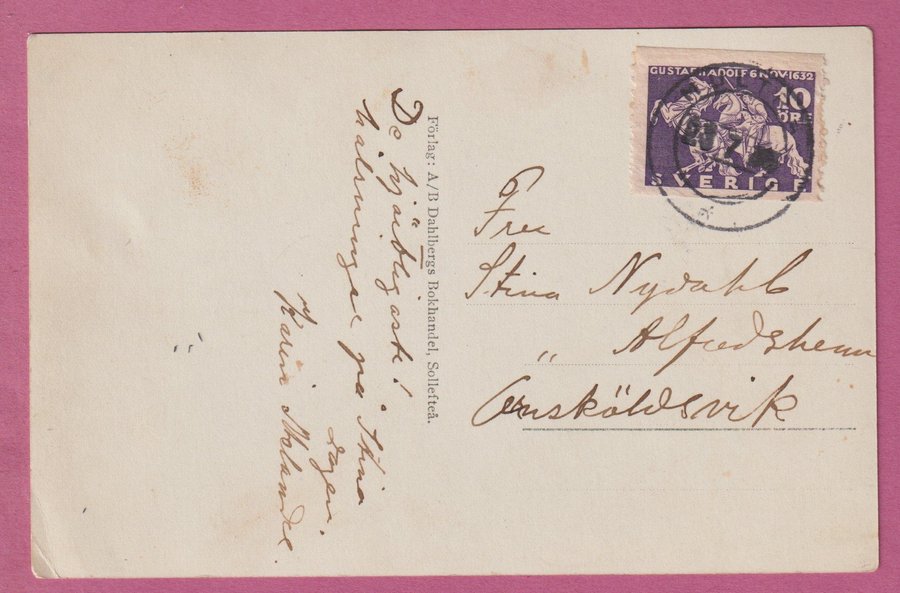 De hjärtligaste!
hälsningar på Stina
dagen.
Karin Melander.
Förlag: A/B Dahlbergs Bokhandel, Sollefteå.
GUSTAF II ADOLF 6 NOV. 1632
10
ÖRE
SVERIGE
23 7
Fru
Stina Nydahl
" Alfredshem
Örnsköldsvik